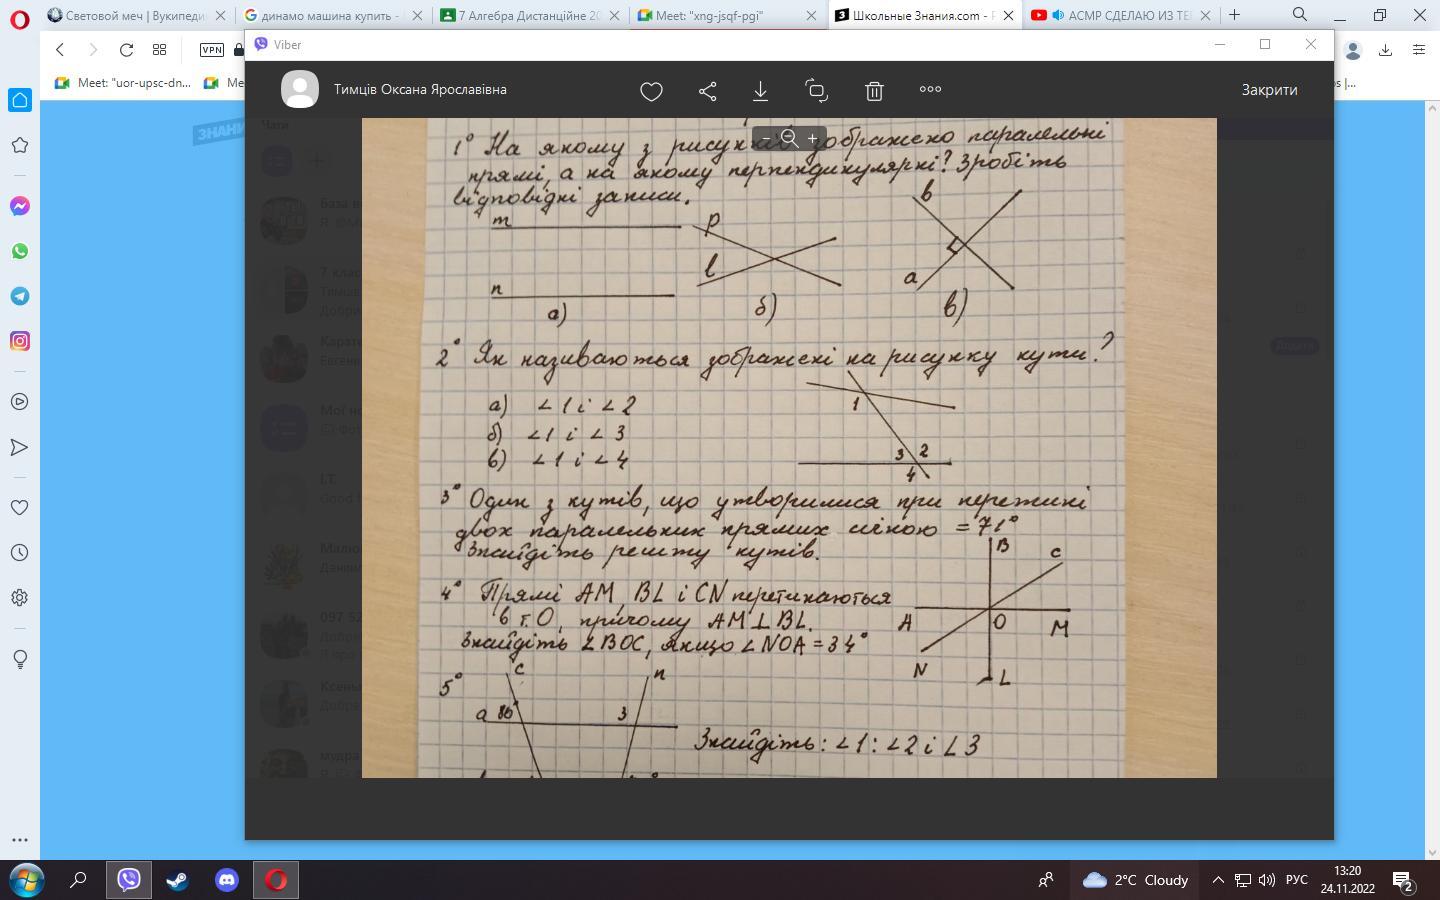 Световой меч | Википеди
динамо машина купить -
7 Алгебра Дистанційне 20
Meet: "xng-jsqf-pgi"
Школьные Знания.com -
АСМР СДЕЛАЮ ИЗ ТЕ
VPN
Meet: "uor-upsc-dn...
Viber
Тимців Оксана Ярославівна
Закрити
1° На якому з рисунків зображено паралельні
прямі, а на якому перпендикулярні? Зробіть
відповідні записи.
m
n
а)
p
l
б)
b
a
в)
2° Як називаються зображені на рисунку кути?
а) ∠1 і ∠2
б) ∠1 і ∠3
в) ∠1 і ∠4
1
3 2
4
3° Один з кутів, що утворилися при перетині
двох паралельних прямих січною = 71°
Знайдіть решту кутів.
4° Прямі AM, BL і CN перетинаються
в т.O, причому AM⊥BL.
Знайдіть ∠BOC, якщо ∠NOA = 34°
B
C
A
O
M
N
L
5°
c
n
a
3
Знайдіть: ∠1: ∠2 і ∠3
2°C Cloudy
РУС
13:20
24.11.2022
2